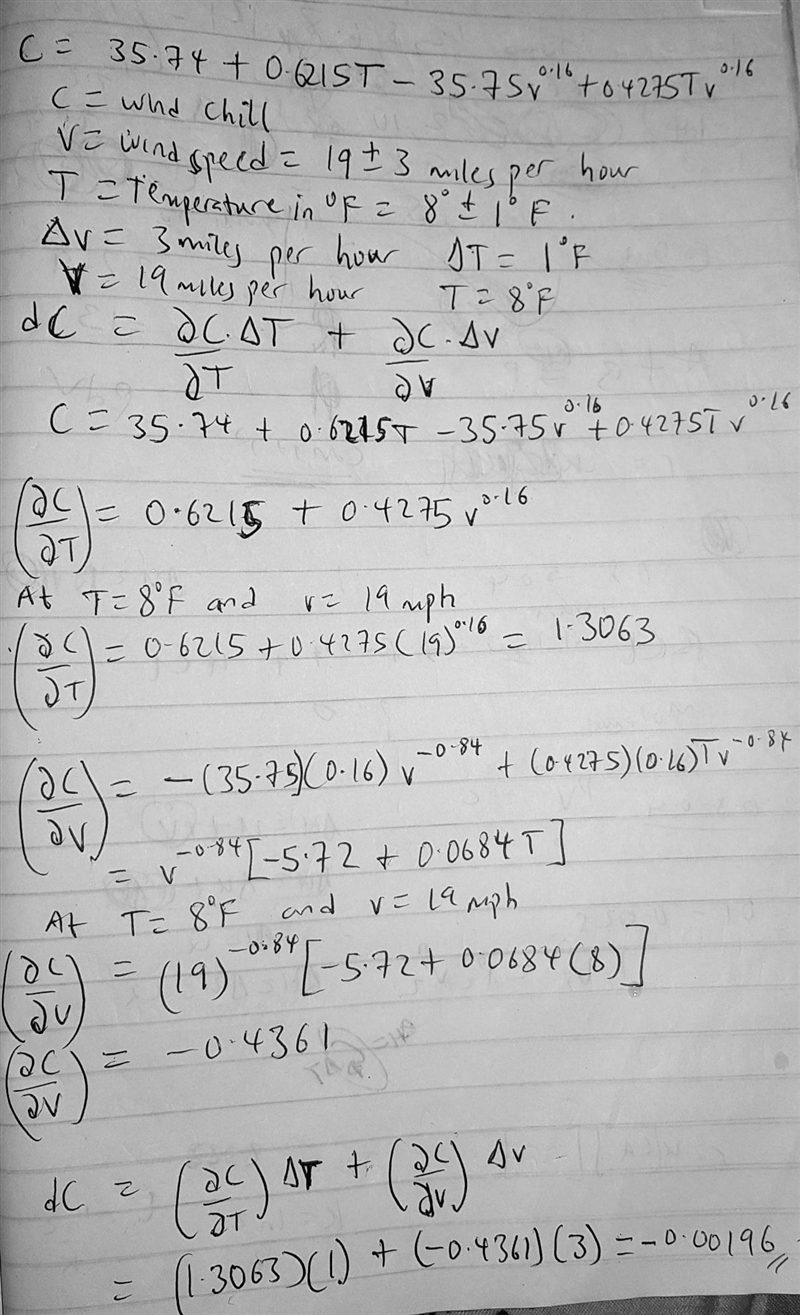 C = 35.74 + 0.6215T - 35.75v^0.16 + 0.4275Tv^0.16
C = wind chill
V = wind speed = 19 ± 3 miles per hour
T = Temperature in °F = 8° ± 1° F.
Δv = 3 miles per hour ΔT = 1°F
V = 19 miles per hour T = 8°F
dC = ∂C/∂T · ΔT + ∂C/∂V · Δv
C = 35.74 + 0.6215T - 35.75v^0.16 + 0.4275Tv^0.16
(∂C/∂T) = 0.6215 + 0.4275 v^0.16
At T = 8°F and v = 19 mph
(∂C/∂T) = 0.6215 + 0.4275(19)^0.16 = 1.3063
(∂C/∂V) = -(35.75)(0.16) v^-0.84 + (0.4275)(0.16)Tv^-0.84
= v^-0.84 [-5.72 + 0.0684T]
At T = 8°F and v = 19 mph
(∂C/∂V) = (19)^-0.84 [-5.72 + 0.0684(8)]
(∂C/∂V) = -0.4361
dC = (∂C/∂T) ΔT + (∂C/∂V) Δv
= (1.3063)(1) + (-0.4361)(3) = -0.00196